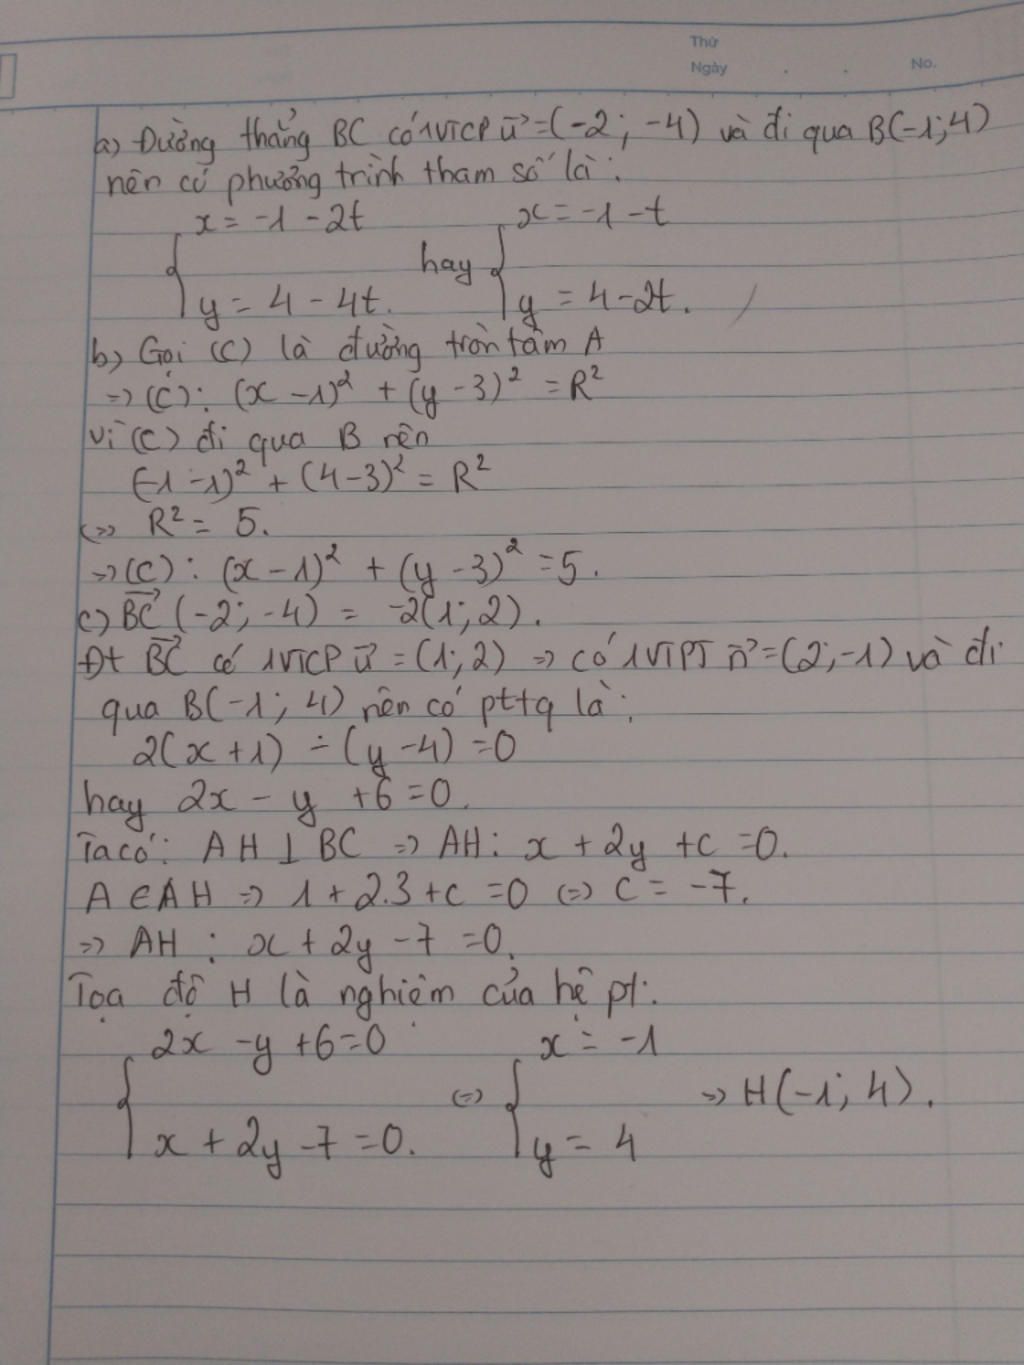 Thứ
Ngày
No.
a) Đường thẳng BC có 1VTCP u⃗ = (-2; -4) và đi qua B(-1; 4)
nên có phương trình tham số là:
{ x = -1 - 2t hay { x = -1 - t
y = 4 - 4t. y = 4 - 2t.
b) Gọi (C) là đường tròn tâm A
=> (C): (x - 1)² + (y - 3)² = R²
Vì (C) đi qua B nên
(-1 - 1)² + (4 - 3)² = R²
<=> R² = 5.
=> (C): (x - 1)² + (y - 3)² = 5.
c) BC⃗ (-2; -4) = -2(1; 2).
Đt BC⃗ có 1VTCP u⃗ = (1; 2) => có 1VTPT n⃗ = (2; -1) và đi
qua B(-1; 4) nên có pttq là:
2(x + 1) - (y - 4) = 0
hay 2x - y + 6 = 0.
Ta có: AH ⊥ BC => AH: x + 2y + c = 0.
A ∈ AH => 1 + 2.3 + c = 0 <=> c = -7.
=> AH: x + 2y - 7 = 0.
Tọa độ H là nghiệm của hệ pt:
{ 2x - y + 6 = 0 <=> { x = -1 => H(-1; 4).
x + 2y - 7 = 0. y = 4